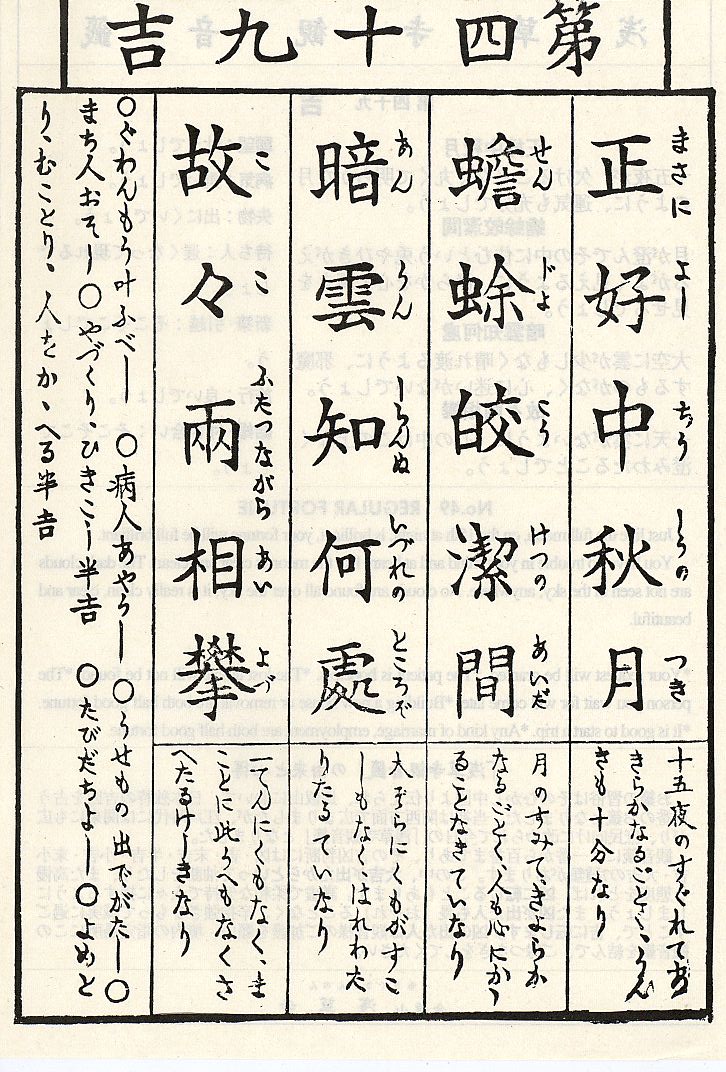 第四十九吉
まさに よし ちう しうの つき
正好中秋月
十五夜のすぐれてあ
きらかなるごとく、うん
きも十分なり
せん じよ こう けつの あいだ
蟾蜍皎潔間
月のすみてあきらか
なるごとく人も心にかゝ
ることなきていなり
あん うん しらんぬ いづれの ところぞ
暗雲知何處
大ぞらにくもがすこ
しもなくはれわた
りたるていなり
こ こ ふたつながら あい よづ
故々兩相攀
一てんにくもなく、ま
ことに此うもなくさ
へたるけしきなり
○ぐわんもう叶ふべし ○病人あやうし ○うせもの出でがたし○
まち人おそし ○やづくりひきこし半吉 ○たびだちよし ○よめと
りむことり、人をかゝへる半吉